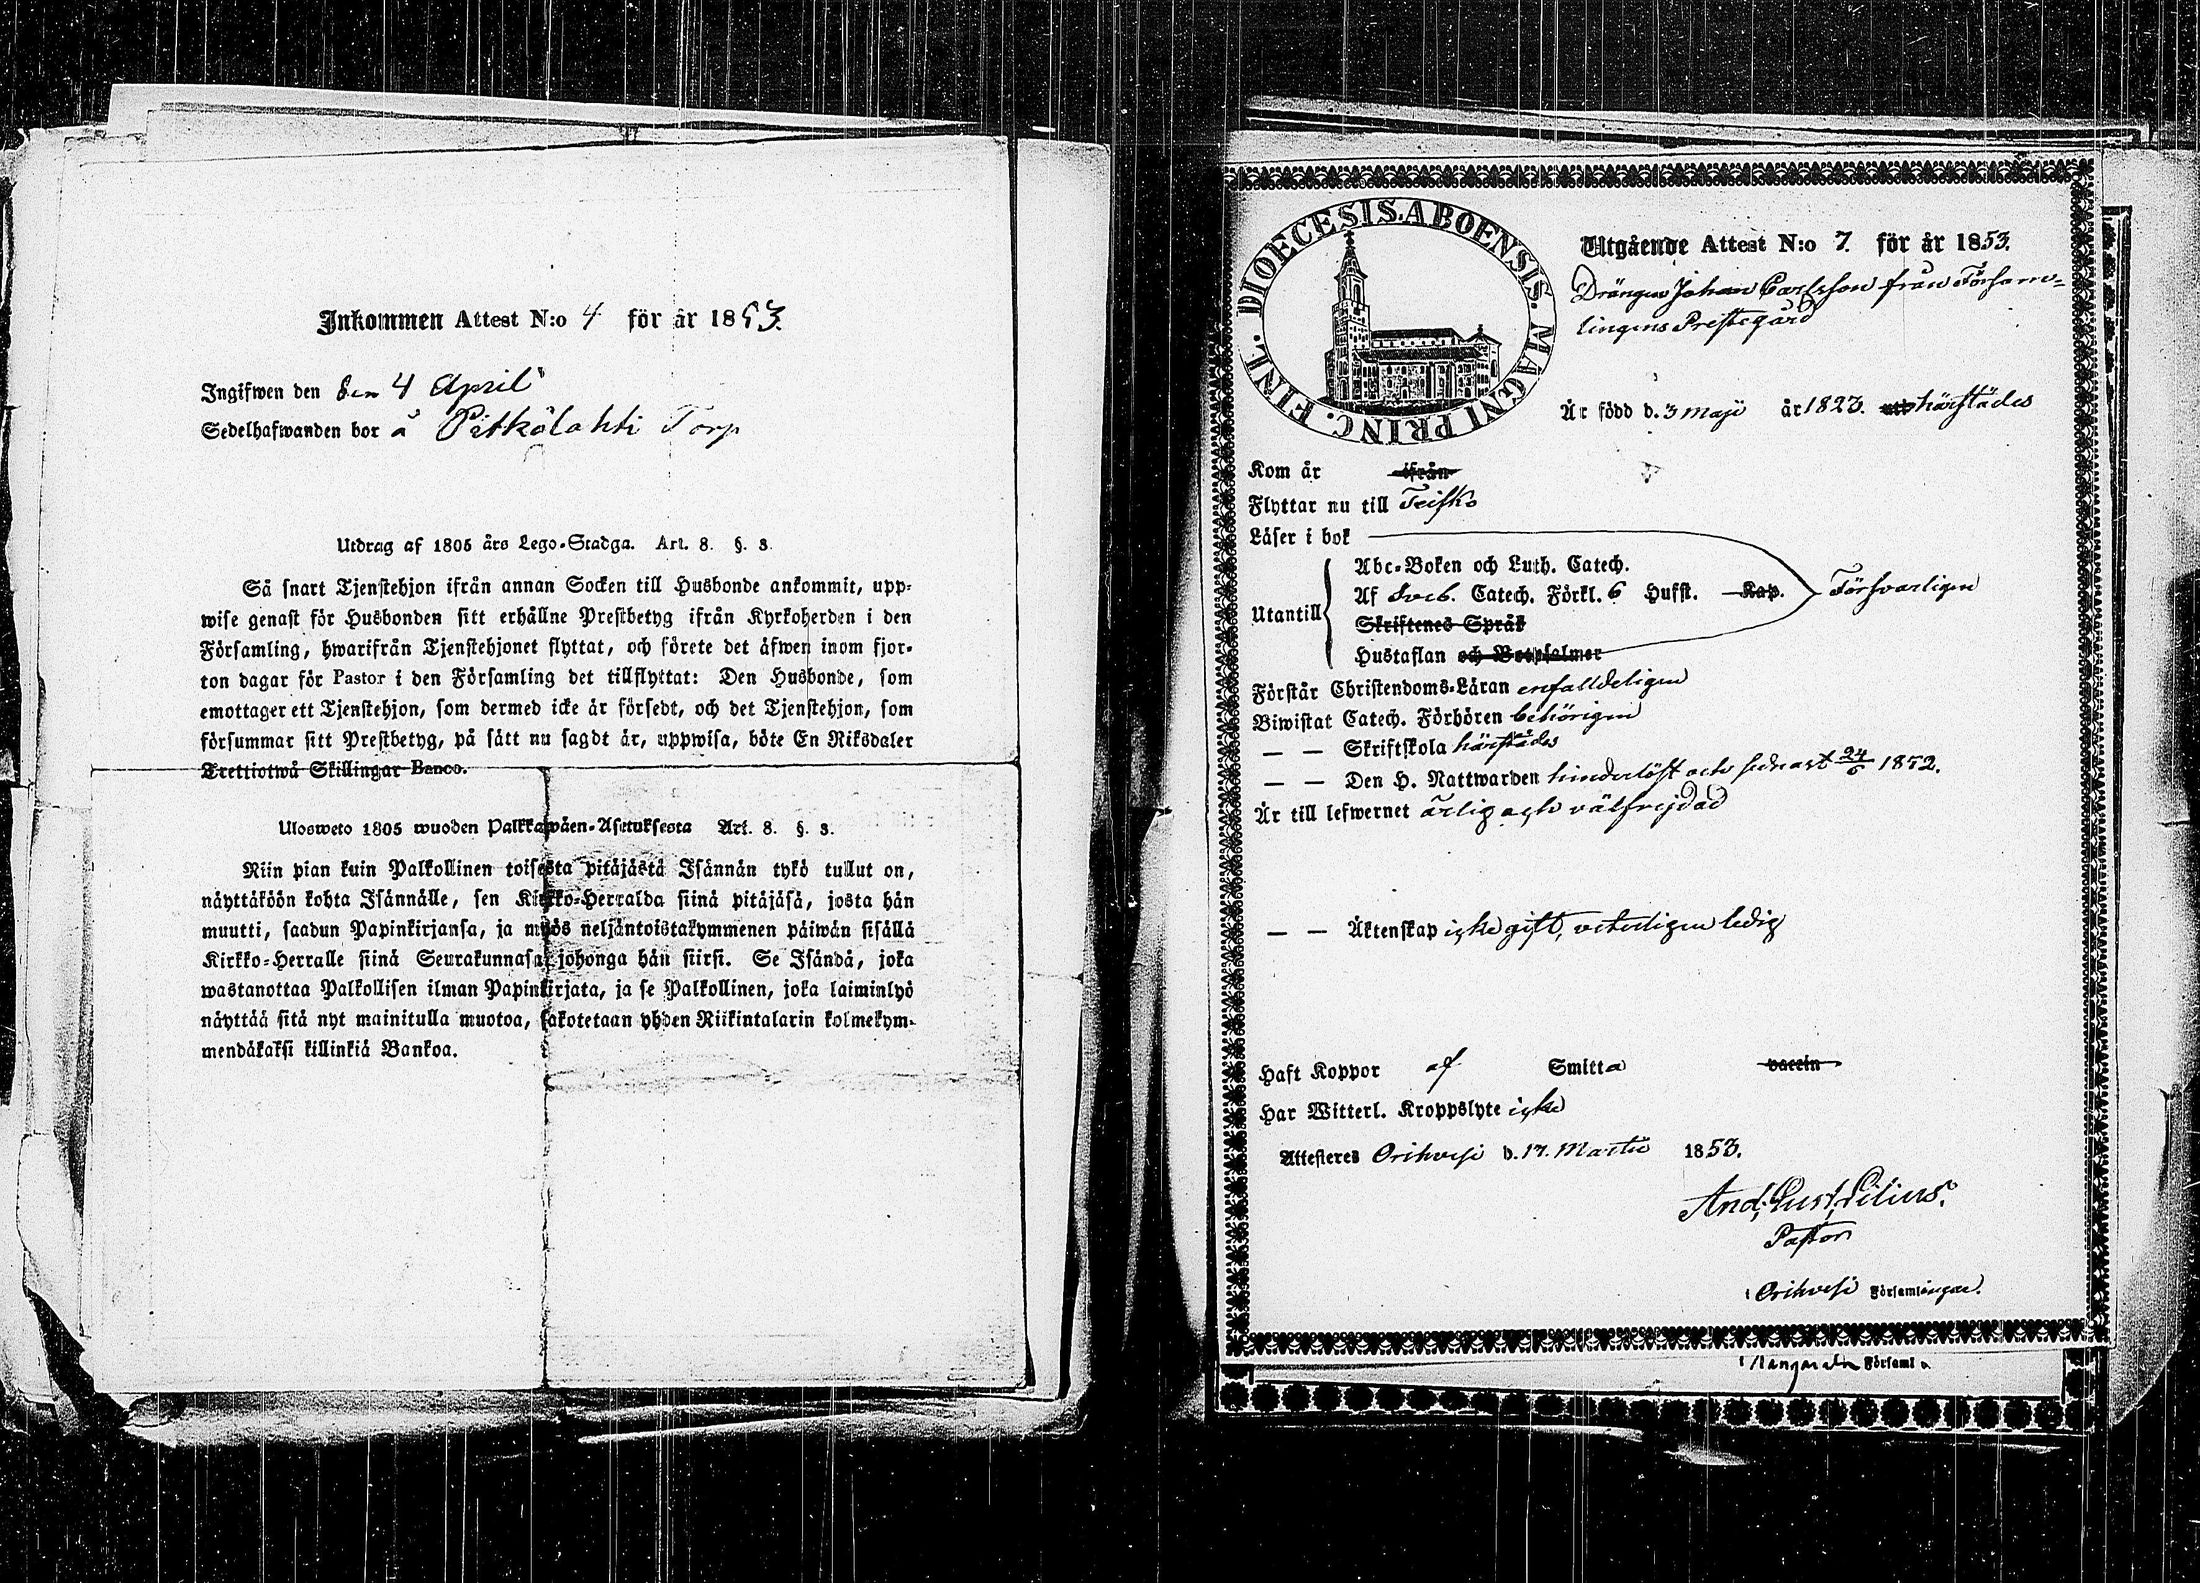 Inkommen Attest N:o 4 för år 1853.
Ingifwen den den 4 April
Sedelhafwanden bor å Pitkälahti Torp
Utdrag af 1805 års Lego-Stadga. Art. 8. §. 3.
Så snart Tjenstehjon ifrån annan Socken till Husbonde ankommit, upp-
wise genast för Husbonden sitt erhållne Prestbetyg ifrån Kyrkoherden i den
Församling, hwarifrån Tjenstehjonet flyttat, och förete det äfwen inom fjor-
ton dagar för Pastor i den Församling det tillflyttat: Den Husbonde, som
emottager ett Tjenstehjon, som dermed icke är försedt, och det Tjenstehjon, som
försummar sitt Prestbetyg, på sätt nu sagdt är, uppwisa, böte En Riksdaler
Trettiotwå Skillingar Banco.
Ulosweto 1805 wuoden Palkkawäen-Asetuksesta Art. 8. §. 3.
Niin pian kuin Palkollinen toisesta pitäjästä Isännän tykö tullut on,
näyttäköön kohta Isännälle, sen Kirkko-Herralda siinä pitäjäsä, josta hän
muutti, saadun Papinkirjansa, ja myös neljäntoistakymmenen päiwän sisällä
Kirkko-Herralle siinä Seurakunnasa, johonga hän siirsi. Se Isändä, joka
wastanottaa Palkollisen ilman Papinkirjata, ja se Palkollinen, joka laiminlyö
näyttää sitä nyt mainitulla muotoa, sakotetaan yhden Riikintalarin kolmekym-
mendäkaksi killinkiä Bankoa.
DIOECESIS. ABOENSIS. MAGNI PRINC. FINL.
Utgående Attest N:o 7. för år 1853.
Drängen Johan Carlsson från Försam-
lingens Prestegård
Är född d. 3 Maji år 1823. härstädes
Kom år ifrån
Flyttar nu till Teisko
Läser i bok
Abc-Boken och Luth. Catech.
Utantill Af Sveb. Catech. Förkl. 6 Hufst. Kap. Försvarligen
Skriftenes Språk
Hustaflan och Botpsalmer
Förstår Christendoms-Läran enfalldeligen
Biwistat Catech. Förhören behörigen
— — Skriftskola härstädes
— — Den H. Nattwarden hinderlöst och senast 24/6 1852.
Är till lefwernet ärlig och välfrejdad
— — Äktenskap icke gift, veterligen ledig
Haft Koppor af Smitta vaccin
Har Witterl. Kroppslyte icke
Attesteres Orihvesi d. 17. Martii 1853.
And. Gust. Cilius.
Pastor
i Orihvesi Församlingar.
Församl